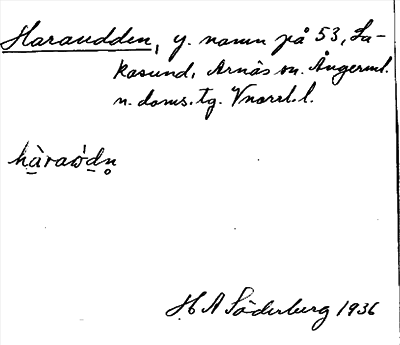 Haraudden, y. namn på 53, La-
kasund, Arnäs sn. Ångerml.
n. doms. tg. Vnorrl. l.
hàraωdn̥
H A Söderberg 1936